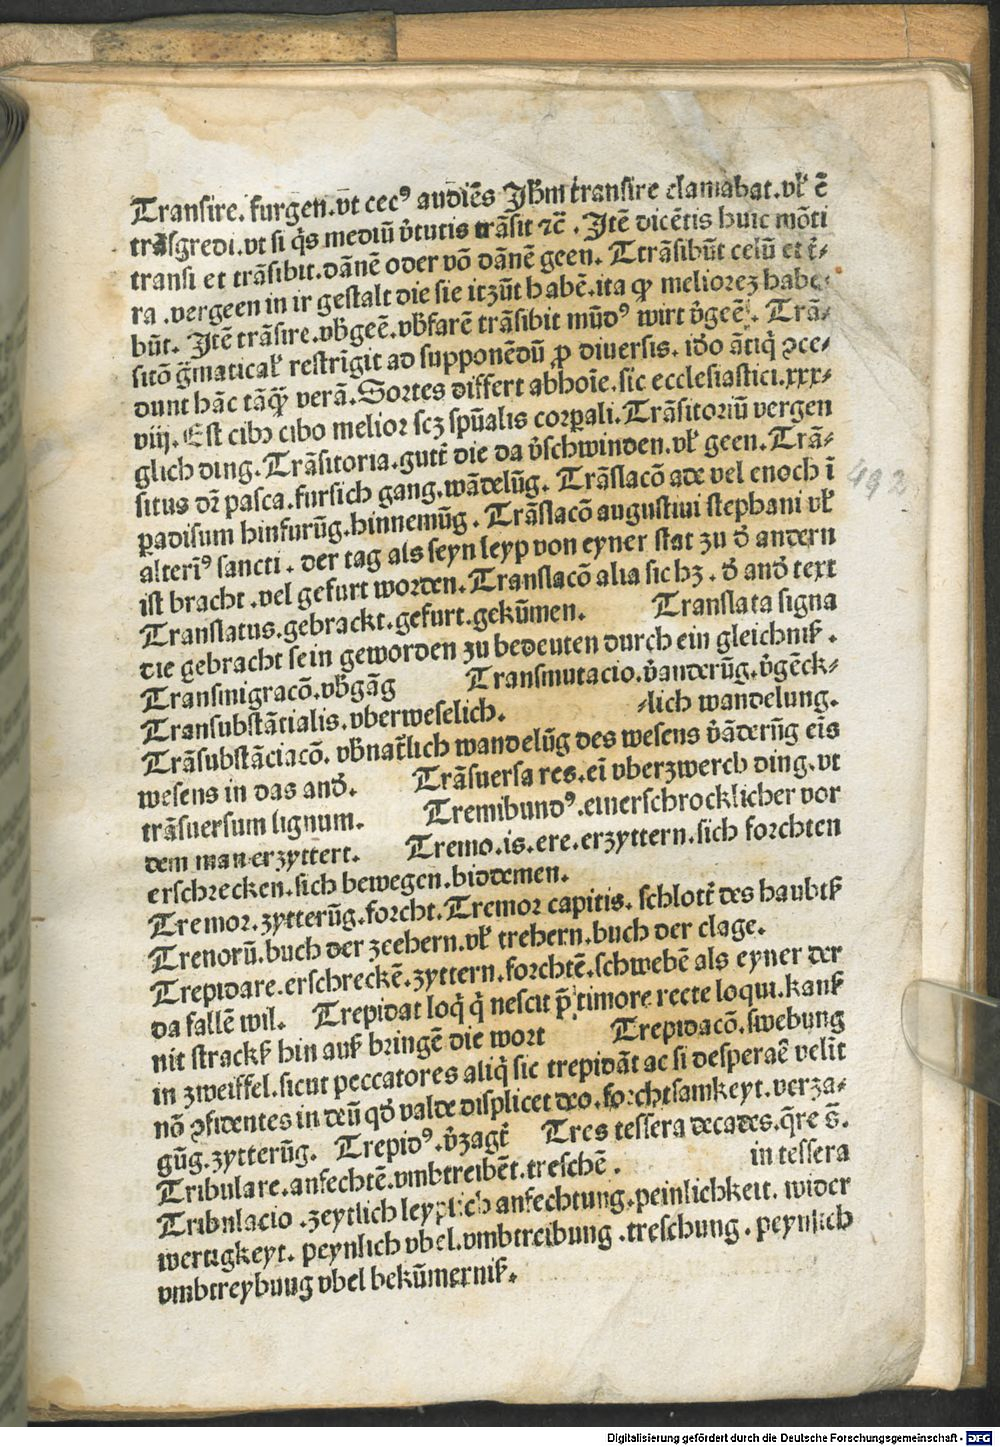 Transire. furgen. vt cecꝰ audiēs Jhm transire clamabat. vl' ē
trāsgredi. vt si q̄s mediū v̓tutis trāsit ⁊c̄. Itē dicētis huic mōti
transi et trāsibit. dānē oder vō dānē geen. Ttrāsibūt celū et t̄-
ra. vergeen in ir gestalt die sie itzūt habē. ita ꝙ meliorez habe
būt. Itē trāsire. vb̓geē. vb̓farē trāsibit mūdꝰ wirt v̓geē. Trā-
sitō g̃maticaľ restrīgit ad supponēdū ꝓ diuersis. iđo ātiq̄ ꝯce-
dunt hāc tāꝙ̄ verā. Sortes differt abhoīe. sic ecclesiastici. xxx-
viij. Est cibꝯ cibo melior scz spūalis corꝑali. Trāsitoriū vergen
glich ding. Trāsitoria. gutt̄ die da v̓schwinden. vl' geen. Trā-
situs dr̄ pasca. fursich gang. wādelūg. Trāslacō ade vel enoch ī
ꝑadisum hinfurūg. hinnemūg. Trāslacō augustini stephani vl'
alteriꝰ sancti. der tag als seyn leyp von eyner stat zu đ andern
ist bracht. vel gefurt worden. Translacō alia sic hz. đ anđ text
Translatus. gebrackt. gefurt. gekūmen. Translata signa
die gebracht sein geworden zu bedeuten durch ein gleichniß.
Transmigracō. vb̓gāg Transmutacio. v̓anderūg. v̓gēck-
Transubstātialis. vberweselich. -lich wandelung.
Trāsubstāciacō. vb̓nat̄lich wandelūg des wesens v̓āderūg eīs
wesens in das anđ. Trāsuersa res. eī vberzwerch ding. vt
trāsuersum lignum. Tremibundꝰ. einerschrocklicher vor
dem man erzyttert. Tremo. is. ere. erzyttern. sich forchten
erschrecken. sich bewegen. bidemen.
Tremor. zytterūg. forcht. Tremor capitis. schlott̄ des haubtß
Trenorū. buch der zeehern. vl' trehern. buch der clage.
Trepidare. erschreckē. zyttern. forchtē. schwebē als eyner der
da fallē wil. Trepidat loq̄ q̄ nescit p̄ timore recte loqui. kanß
nit strackß hin auß bringē die wort Trepidacō. swebung
in zweiffel. sicut peccatores aliq̄ sic trepidāt ac si desperaē velīt
nō ꝯfidentes in deū qđ valde displicet deo. forchtsamkeyt. verza-
gūg. zytterūg. Trepidꝰ. v̓zagt̄ Tres tessera decades. q̄re s̄.
Tribulare. anfechtē. vmbtreibēt. treschē. in tessera
Tribulacio. zeytlich leyplich anfechtung. peinlichkeit. wider
wertigkeyt. peynlich vbel. vmbtreibung. treschung. peynlich
vmbtreybung vbel bekūmerniß.
492
Digitalisierung gefördert durch die Deutsche Forschungsgemeinschaft - DFG